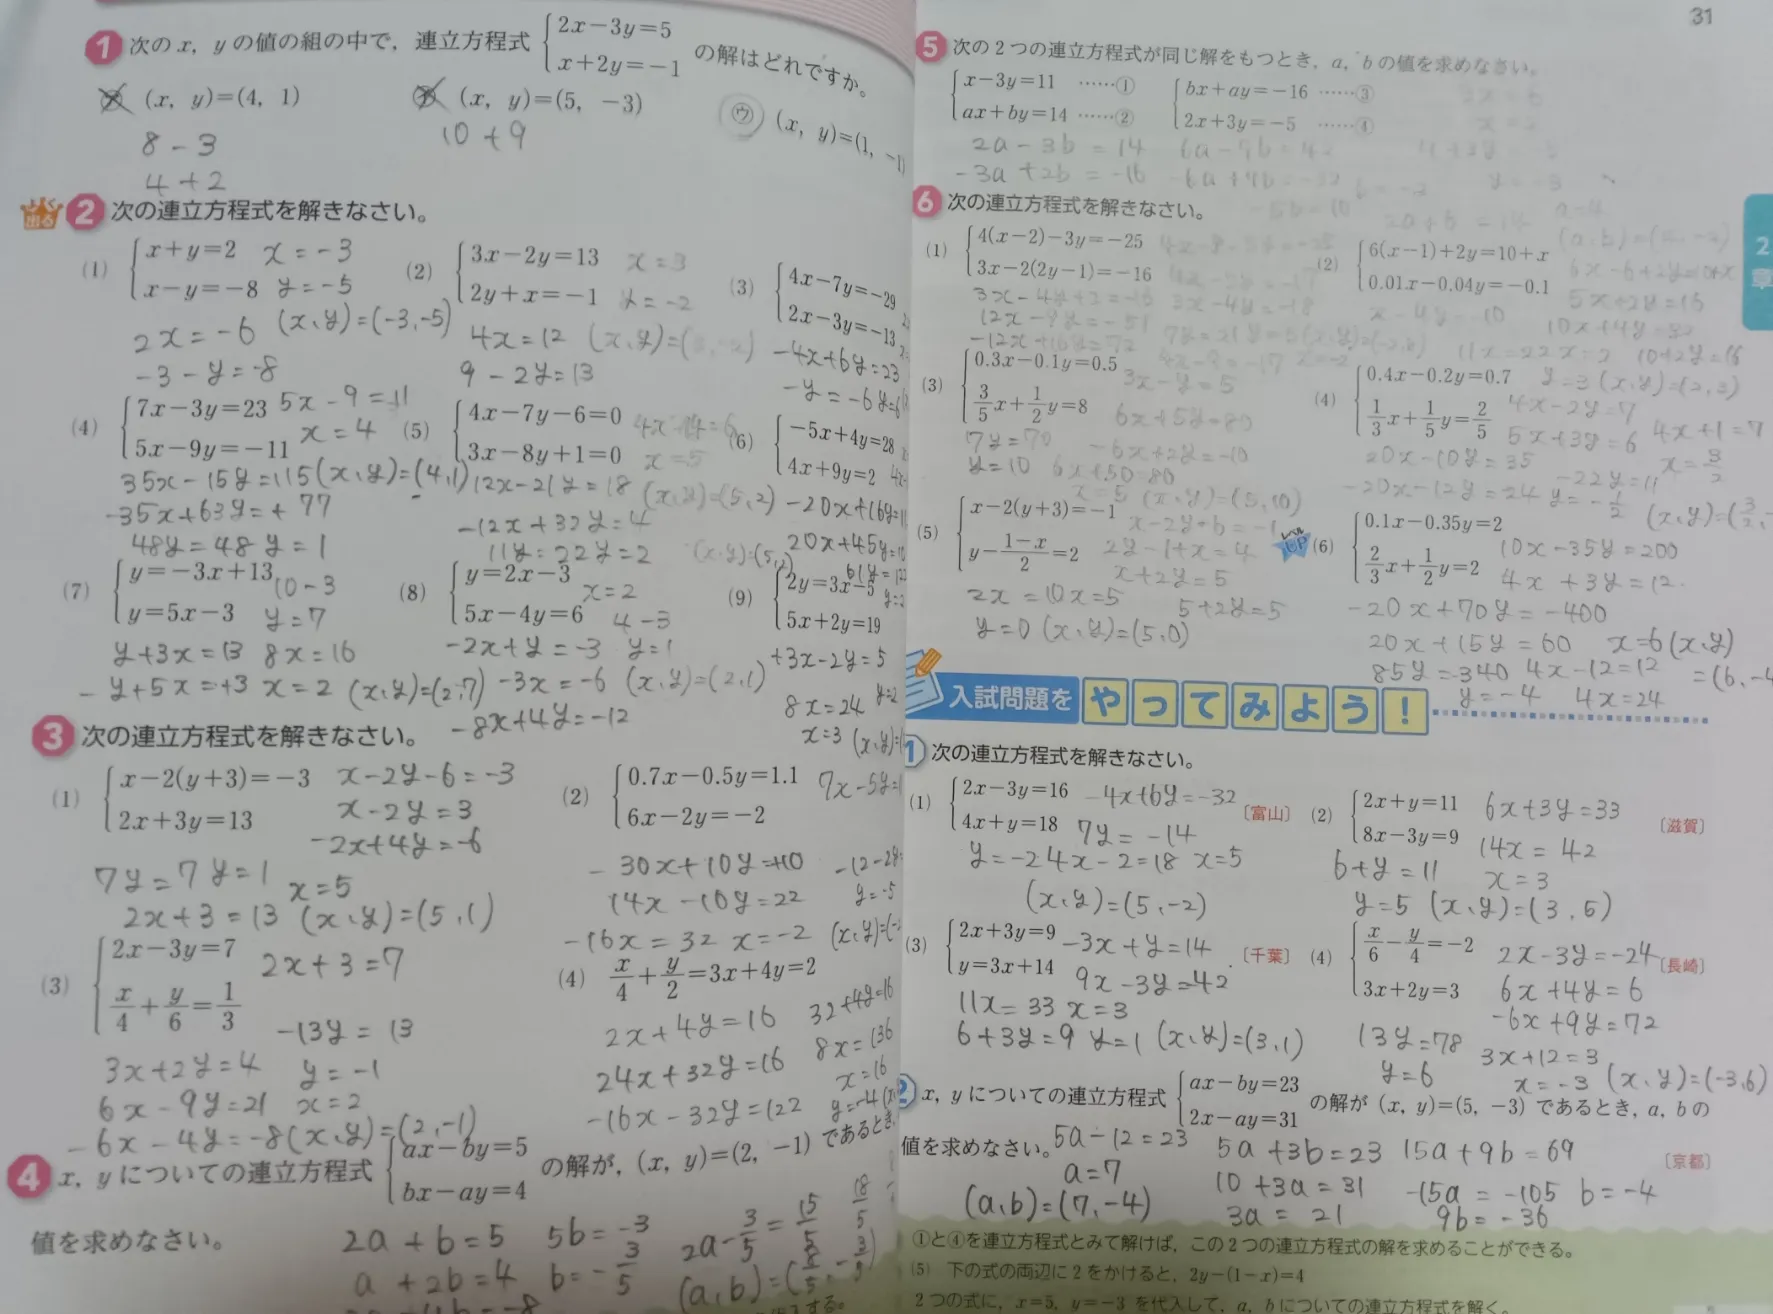 1 次のx, yの値の組の中で, 連立方程式 { 2x−3y=5 x+2y=−1 の解はどれですか。
ア (x, y)=(4, 1) イ (x, y)=(5, −3) ウ (x, y)=(1, −1)
8−3
4+2
10+9
よく出る 2 次の連立方程式を解きなさい。
(1) { x+y=2 x−y=−8
x=−3
y=−5
2x=−6 (x、y)=(−3,−5)
−3−y=−8
(2) { 3x−2y=13 2y+x=−1
x=3
y=−2
4x=12 (x、y)=(3,−2)
9−2y=13
(3) { 4x−7y=−29 2x−3y=−13
−4x+6y=23
(4) { 7x−3y=23 5x−9y=−11
5x−9=−11
x=4
35x−15y=115 (x、y)=(4,1)
−35x+63y=+77
48y=48 y=1
(5) { 4x−7y−6=0 3x−8y+1=0
4x−14=6
x=5
12x−21y=18 (x、y)=(5,2)
−12x+32y=4
11y=22 y=2
(6) { −5x+4y=28 4x+9y=2
20x+45y=10
(7) { y=−3x+13 y=5x−3
10−3
y=7
y+3x=13 8x=16
−y+5x=+3 x=2 (x、y)=(2,7)
(8) { y=2x−3 5x−4y=6
x=2
4−3
−2x+y=−3 y=1
−3x=−6 (x、y)=(2,1)
−8x+4y=−12
(9) { 2y=3x−5 5x+2y=19
+3x−2y=5
8x=24 y=2
x=3
3 次の連立方程式を解きなさい。
(1) { x−2(y+3)=−3 2x+3y=13
x−2y−6=−3
x−2y=3
−2x+4y=−6
7y=7 y=1
x=5
2x+3=13 (x、y)=(5,1)
(2) { 0.7x−0.5y=1.1 6x−2y=−2
−30x+10y=+10
14x−10y=22 y=−5
−16x=32 x=−2
(3) { 2x−3y=7 x/4+y/6=1/3
2x+3=7
−13y=13
3x+2y=4 y=−1
6x−9y=21 x=2
−6x−4y=−8 (x、y)=(2,−1)
(4) x/4+y/2=3x+4y=2
32+4y=16
2x+4y=16
8x=136
24x+32y=16 x=16
−16x−32y=122
4 x, yについての連立方程式 { ax−by=5 bx−ay=4 の解が, (x, y)=(2, −1) であるとき,
値を求めなさい。
2a+b=5 5b=−3 2a−3/5=15/5
a+2b=4 b=−3/5 (a、b)=(8/5,−3/5)
31
5 次の2つの連立方程式が同じ解をもつとき, a, bの値を求めなさい。
{ x−3y=11 ……① ax+by=14 ……②
{ bx+ay=−16 ……③ 2x+3y=−5 ……④
2a−3b=14
−3a+2b=−16
2章
6 次の連立方程式を解きなさい。
(1) { 4(x−2)−3y=−25 3x−2(2y−1)=−16
3x−4y+2=−16 3x−4y=−18
12x−9y=−51
−12x+16y=72
(2) { 6(x−1)+2y=10+x 0.01x−0.04y=−0.1
6x−6+2y=10+x
5x+2y=16
x−4y=−10 10x+4y=32
11x=22 x=2 10+2y=16
y=3 (x、y)=(2,3)
(3) { 0.3x−0.1y=0.5 3/5x+1/2y=8
3x−y=5
6x+5y=80
7y=70 −6x+2y=−10
y=10 6x+50=80
x=5 (x、y)=(5,10)
(4) { 0.4x−0.2y=0.7 1/3x+1/5y=2/5
4x−2y=7
5x+3y=6 4x+1=7
20x−10y=35 x=3/2
−20x−12y=24 −22y=11
y=−1/2
(5) { x−2(y+3)=−1 y−(1−x)/2=2
x−2y−6=−1
2y−1+x=4
x+2y=5
2x=10 x=5 5+2y=5
y=0 (x、y)=(5,0)
レベルUP (6) { 0.1x−0.35y=2 2/3x+1/2y=2
10x−35y=200
4x+3y=12
−20x+70y=−400
20x+15y=60 x=6 (x、y)
85y=−340 4x−12=12 =(6,−4
y=−4 4x=24
入試問題をやってみよう!
1 次の連立方程式を解きなさい。
(1) { 2x−3y=16 4x+y=18 〔富山〕
−4x+6y=−32
7y=−14
y=−2 4x−2=18 x=5
(x、y)=(5,−2)
(2) { 2x+y=11 8x−3y=9 〔滋賀〕
6x+3y=33
14x=42
6+y=11 x=3
y=5 (x、y)=(3,5)
(3) { 2x+3y=9 y=3x+14 〔千葉〕
−3x+y=14
9x−3y=42
11x=33 x=3
6+3y=9 y=1 (x、y)=(3,1)
(4) { x/6−y/4=−2 3x+2y=3 〔長崎〕
2x−3y=−24
6x+4y=6
−6x+9y=72
13y=78 3x+12=3
y=6 x=−3 (x、y)=(−3,6)
2 x, yについての連立方程式 { ax−by=23 2x−ay=31 の解が (x, y)=(5, −3) であるとき, a, bの
値を求めなさい。 〔京都〕
5a−12=23 5a+3b=23 15a+9b=69
a=7 10+3a=31 −15a=−105 b=−4
(a、b)=(7,−4) 3a=21 9b=−36
①と④を連立方程式とみて解けば, この2つの連立方程式の解を求めることができる。
(5) 下の式の両辺に2をかけると, 2y−(1−x)=4
2つの式に, x=5, y=−3 を代入して, a, bについての連立方程式を解く。